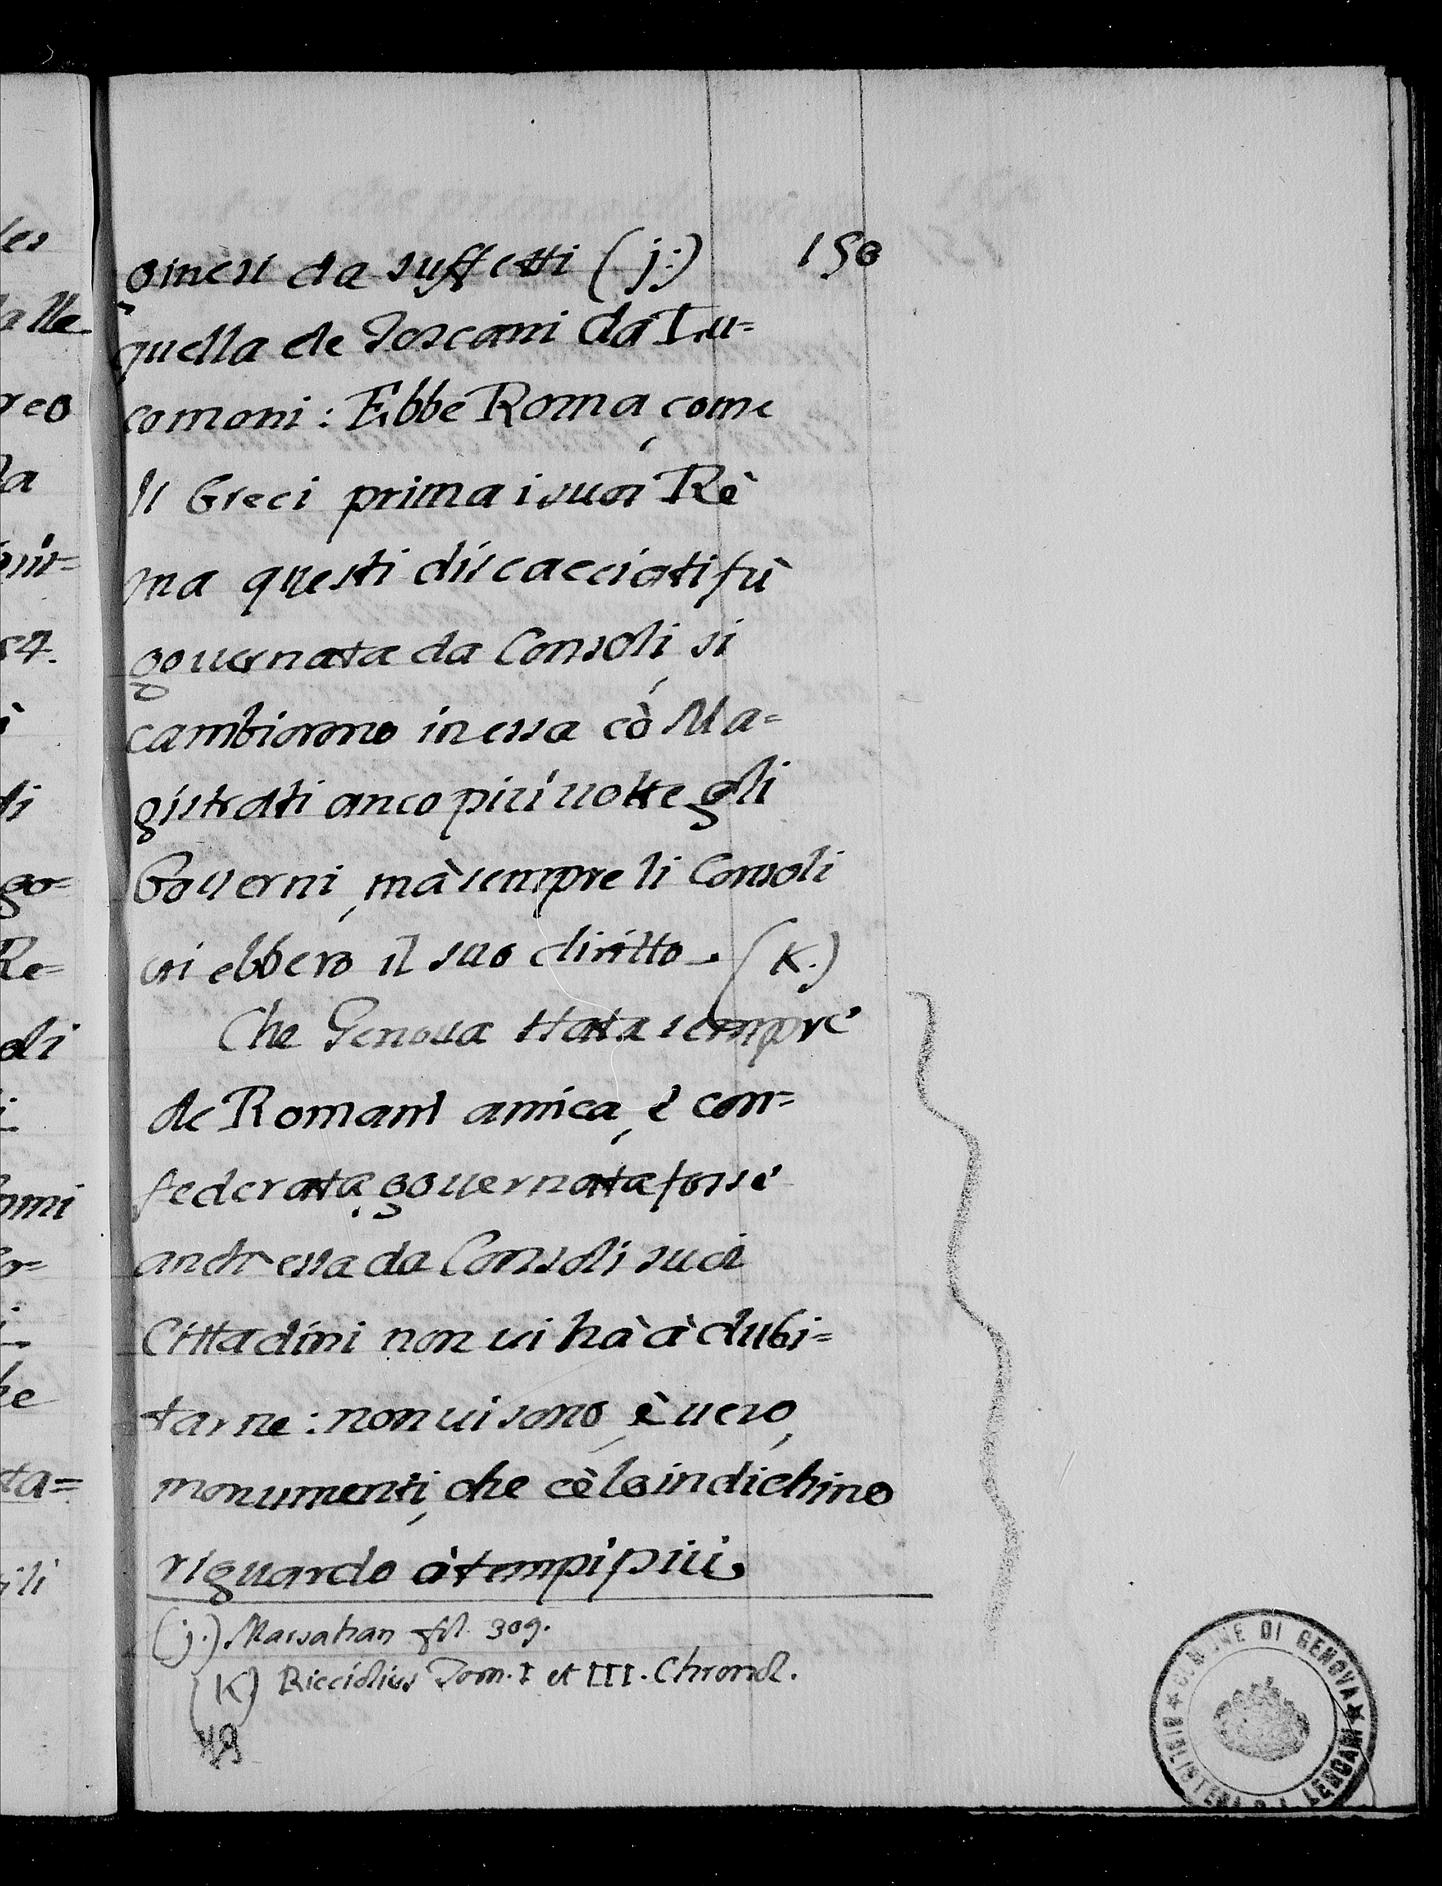 150
ginesi da suffetti (j.)
quella de Toscani da Lu=
comoni: Ebbe Roma, come
li Greci prima i suoi Rè
ma questi discacciati fù
gouernata da Consoli, si
cambiorono in essa cò Ma=
gistrati anco più uolte gli
Gouerni, mà sempre li Consoli
ui ebbero il suo diritto. (K.)
Che Genoua stata sempre
de Romani amica, è con=
federata, gouernata fosse
anch'essa da Consoli suoi
Cittadini non ui hà à dubi=
tarne: non ui sono, è uero,
monumenti, che cè lo indichino
riguardo à tempi più
(j.) fol. 309.
(K) Ricciolius Tom. I et III. Chronol.
COMUNE DI GENOVA
BIBLIOTECA L. LERCARI